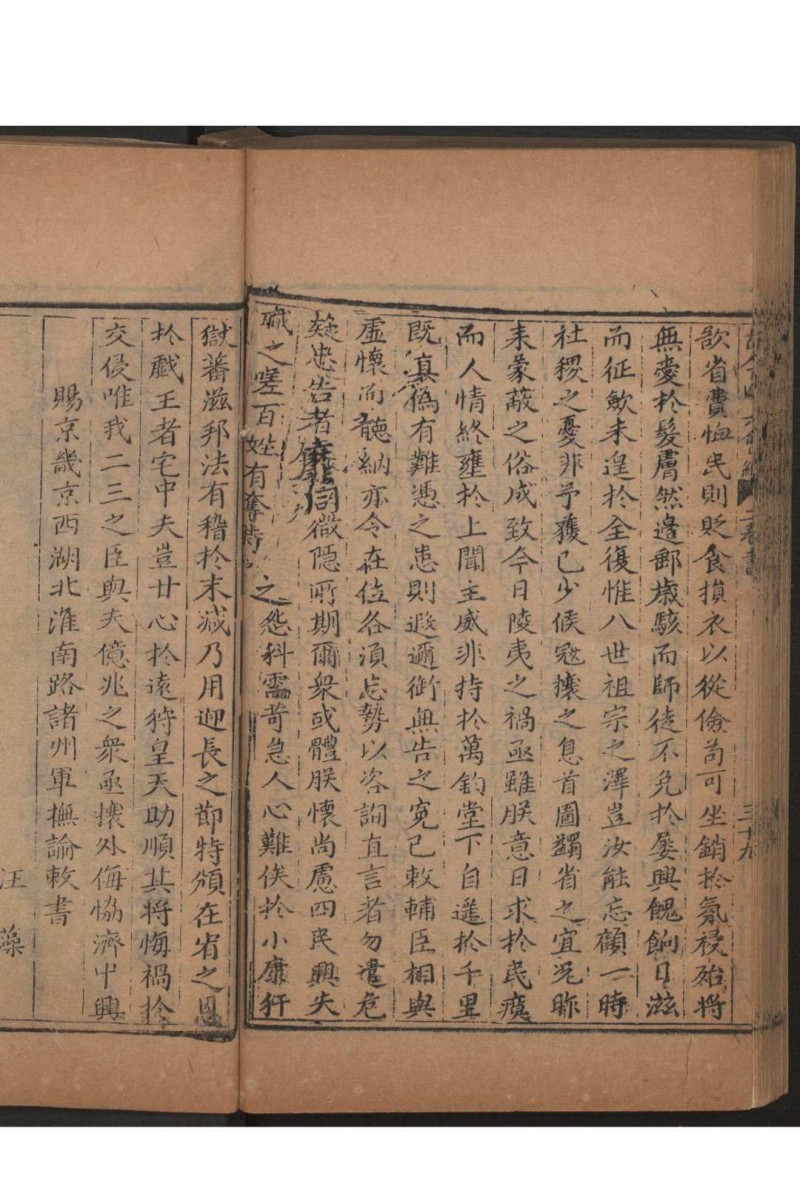 歛省費恤民則貶食損衣以從儉茍可坐銷扵氛祲殆将
無愛扵髮膚然邉鄙歳駭而師徒不免扵屡興餽餉日滋
而征歛未遑扵全復惟八世祖宗之澤豈汝能忘顧一時
社稷之憂非予獲已少候冦攘之息首圖蠲省之宜况昨
来蒙蔽之俗成致今日陵夷之禍亟雖朕意日求扵民瘼
而人情終壅扵上聞主威非持扵萬鈞堂下自遥扵千里
既真僞有難憑之患則遐邇銜無告之寃已敕輔臣相與
虚懷而聽納亦令在位各湏忘勢以咨詢直言者勿遣危
疑忠告者靡同微隠所期爾衆或體朕懷尚慮四民興失
職之嗟百姓有奪時之怨科需苛急人心難俟扵小康犴
獄蕃滋邦法有稽扵末减乃用迎長之節特頒在宥之恩
扵戯王者宅中夫豈甘心扵逺狩皇天助順其将悔禍扵
交侵唯我二三之臣與夫億兆之衆亟攘外侮協濟中興
賜京畿京西湖北淮南路諸州軍撫諭敕書
汪藻
三十九